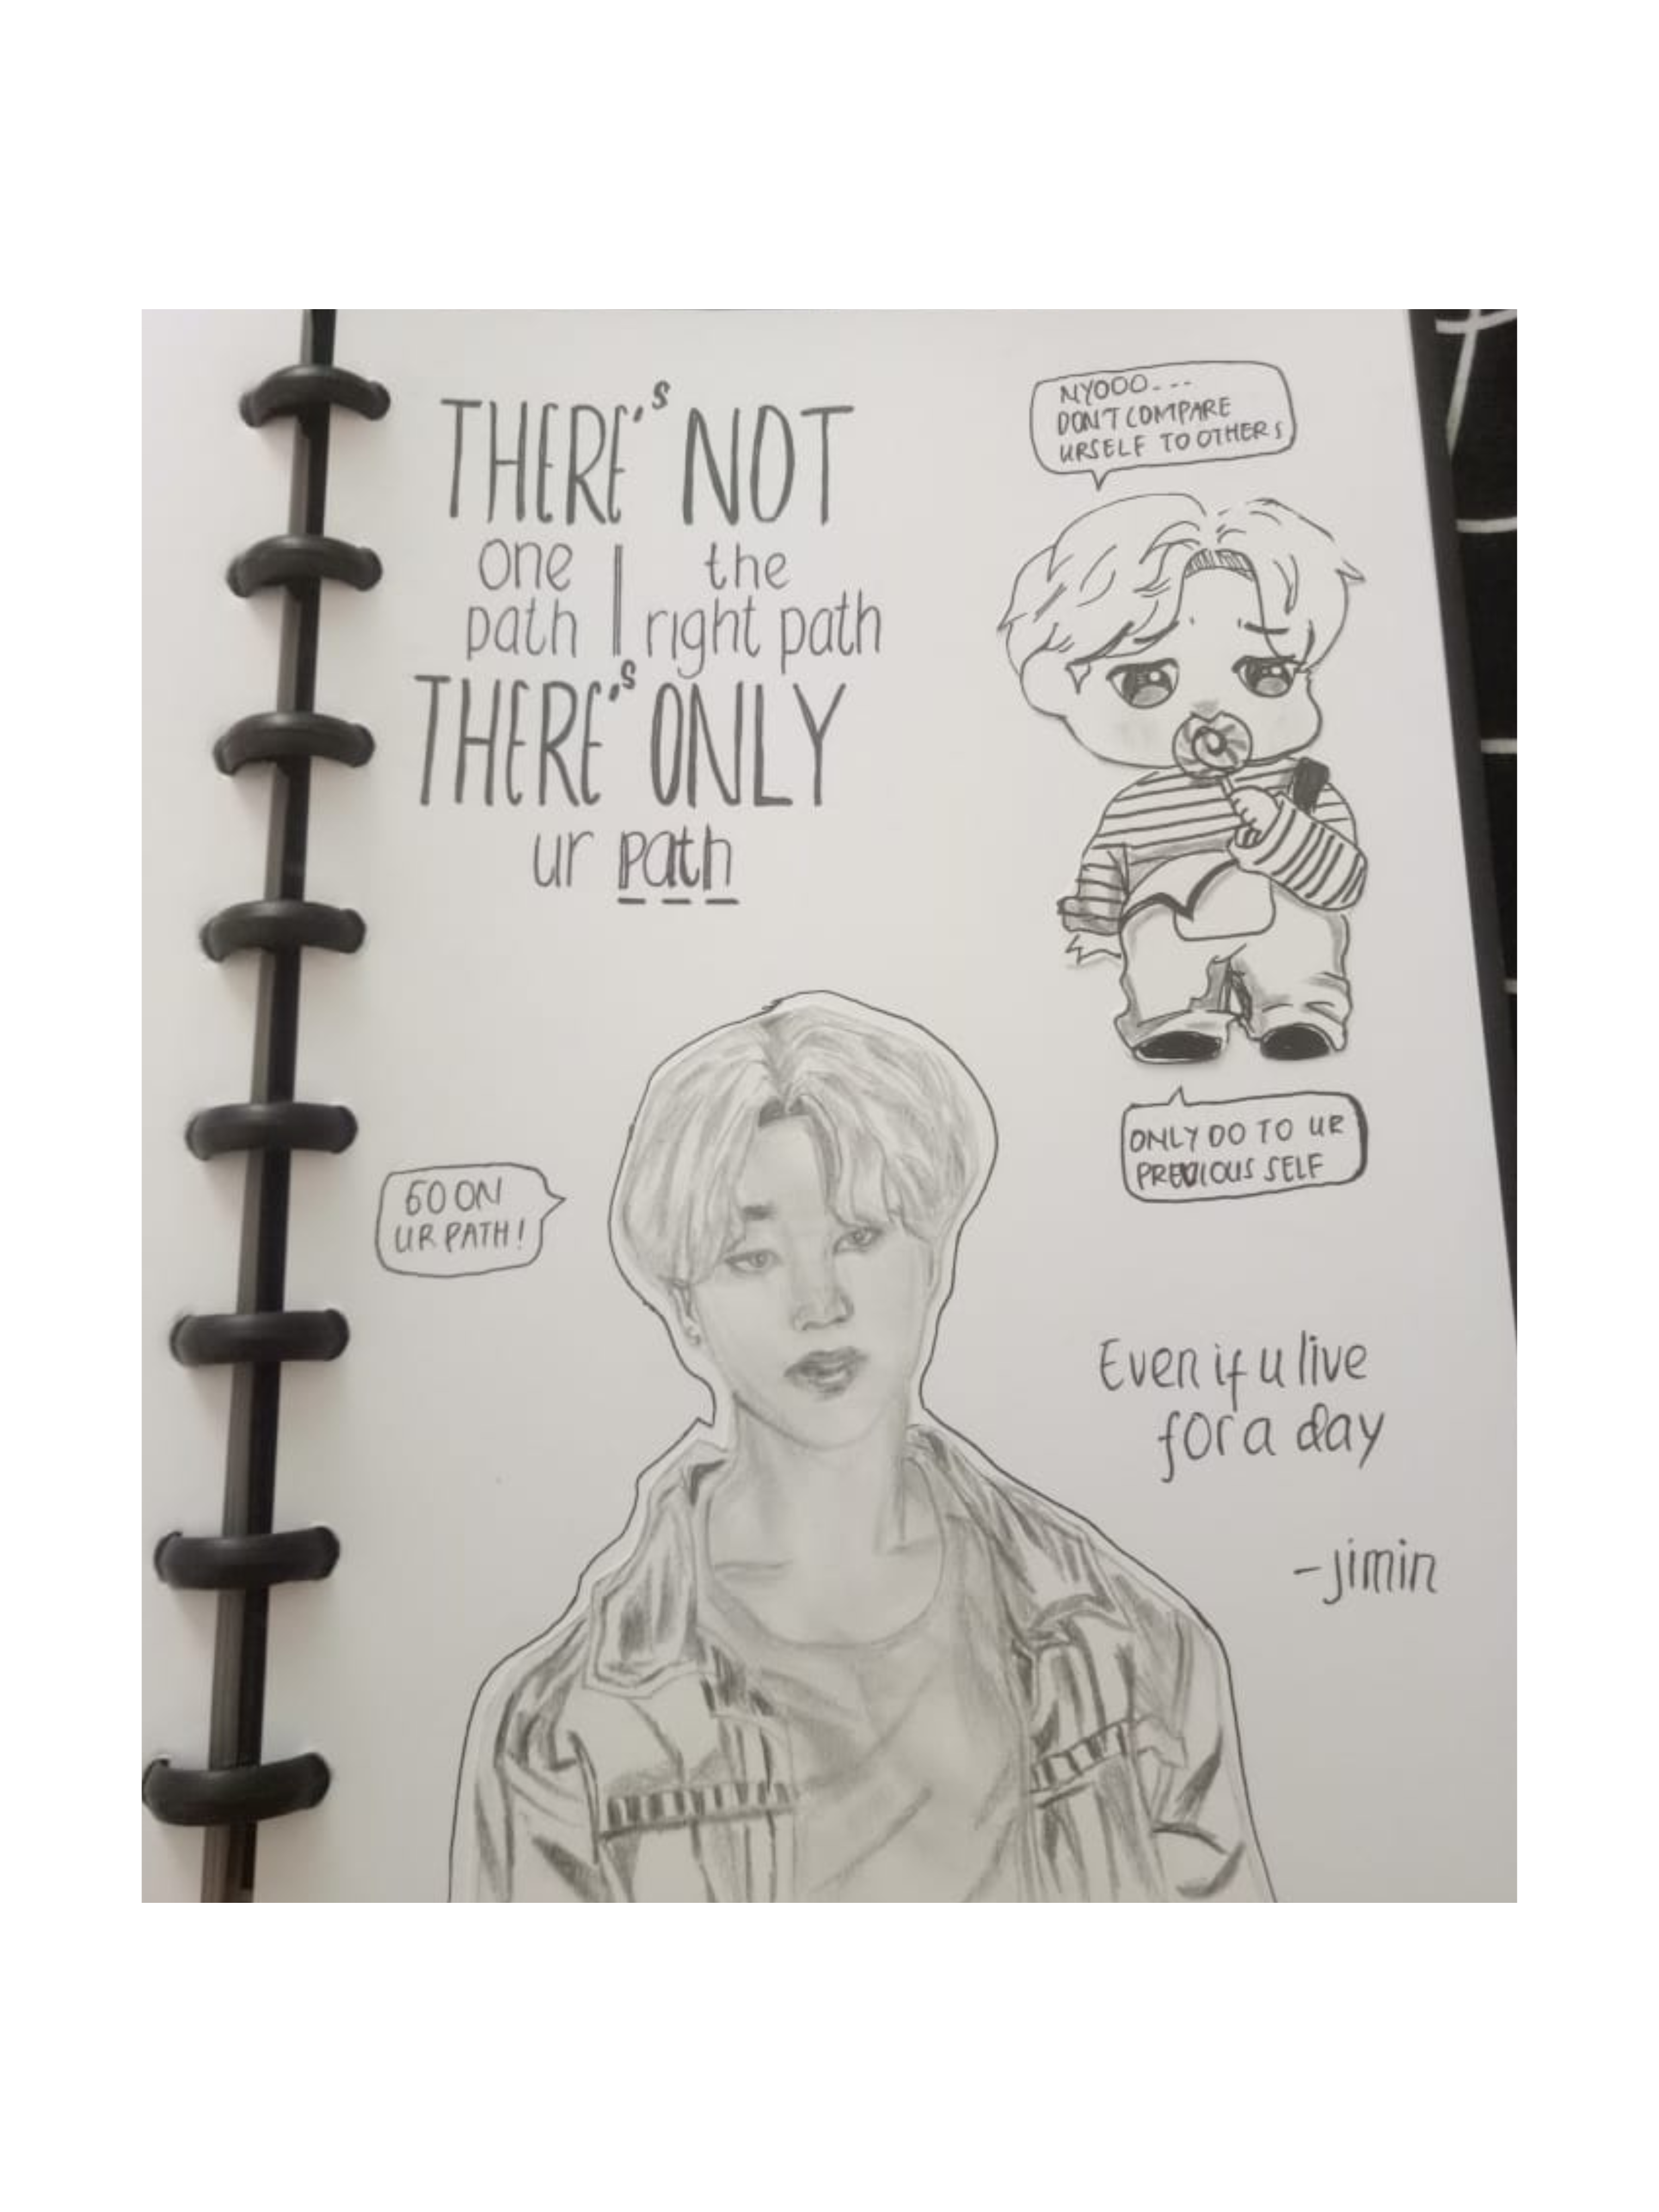 THERE'S NOT
one | the
path | right path
THERE'S ONLY
ur path
NYOOO---
DON'T COMPARE
URSELF TO OTHERS
ONLY DO TO UR
PREVIOUS SELF
GO ON
UR PATH!
Even if u live
for a day
-jimin